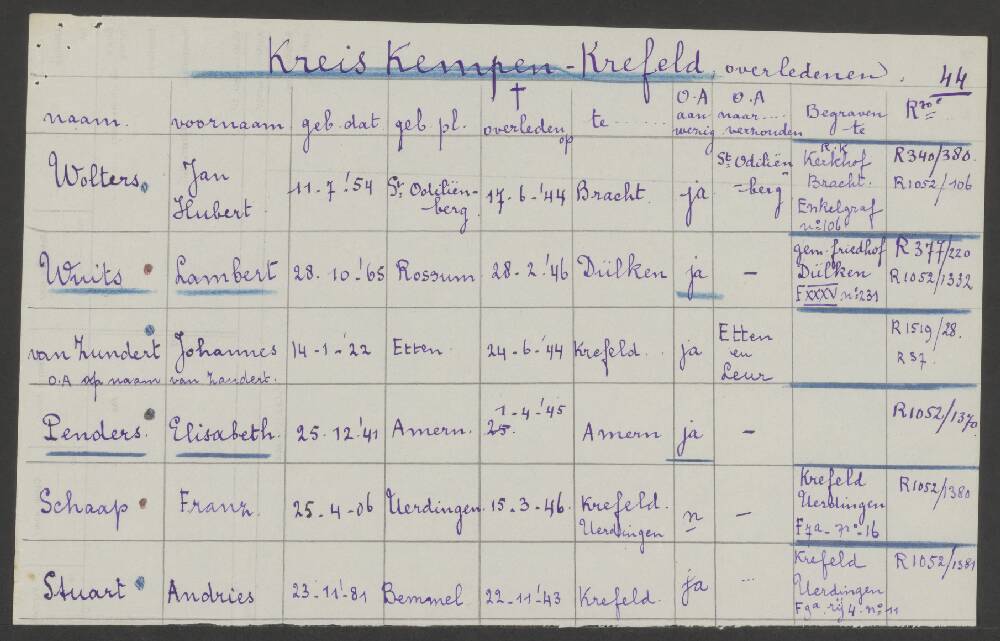 Kreis Kempen - Krefeld, overledenen. 44
naam. voornaam geb. dat. geb. pl. † overleden op te ........ O.A aanwezig O.A naar.... verzonden Begraven te R
Wolters. Jan Hubert 11-7-'54 St. Odiliën-berg. 17-6-'44 Bracht. ja St. Odiliën=berg R.K Kerkhof Bracht. Enkelgraf no: 106 R340/380. R1052/106
Wuits Lambert 28-10-'65 Rossum 28-2-'46 Dülken ja — gem. friedhof Dülken F XXXV no: 231 R377/220 R1052/1332
van Zundert Johannes 14-1-'22 Etten. 24-6-'44 Krefeld... ja Etten en Leur R1519/28. R37.
O.A op naam van Zandert.
Penders. Elisabeth. 25-12-'41 Amern. 25. 1-4-'45 Amern ja — R1052/1370
Schaap Franz. 25-4-06 Uerdingen. 15-3-46. Krefeld. Uerdingen n — Krefeld Uerdingen F7a-7no-16 R1052/1380
Stuart Andries 23-11-'81 Bemmel 22-11-'43 Krefeld. ja ... Krefeld Uerdingen F9a rij 4. no: 11 R1052/1381